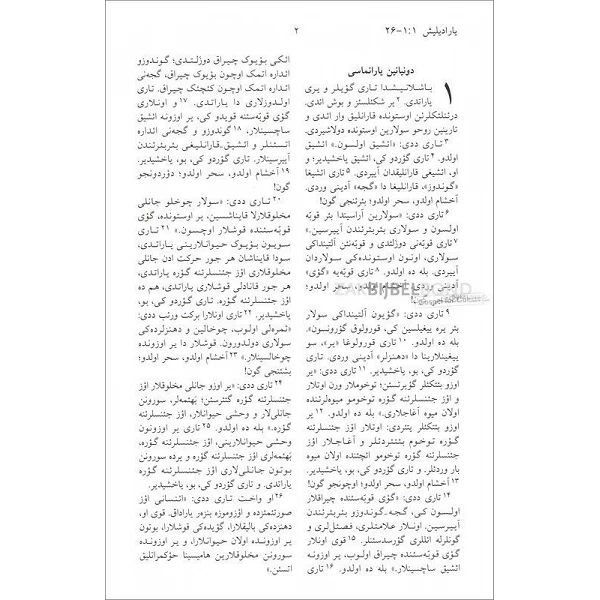 یارادیلیش ۱:۱-۲۶
۲
دونیانین یارانماسی
۱ باشلانیشدا تاری گؤیلر و یری
یاراتدی. ۲یر شکلسیز و بوش ائدی.
درئنلئکلرئن اوستونده قارانلیق وار ائدی و
تارینین روحو سولارین اوستونده دولاشیردی.
۳تاری ددی: «ائشیق اولسون.» ائشیق
اولدو. ۴تاری گؤردو کی، ائشیق یاخشیدیر؛ و
او، ائشیغی قارانلیقدان آییردی. ۵تاری ائشیغا
«گوندوز»، قارانلیغا دا «گجه» آدینی وردی.
آخشام اولدو، سحر اولدو؛ بئرئنجی گون!
۶تاری ددی: «سولارین آراسیندا بئر قوبّه
اولسون و سولاری بئربئرئندن آییرسین.»
۷تاری قوبّه‌نی دوزلتدی و قوبّه‌نئن آلتینداکی
سولاری، اونون اوستونده‌کی سولاردان
آییردی. بله ده اولدو. ۸تاری قوبّه‌یه «گؤی»
آدینی وردی. آخشام اولدو، سحر اولدو؛
ائکئنجی گون!
۹تاری ددی: «گؤیون آلتینداکی سولار
بئر یره ییغیلسین کی، قورولوق گؤرونسون.»
بله ده اولدو. ۱۰تاری قورولوغا «یر»، سو
ییغینلارینا دا «دهنزلر» آدینی وردی. تاری
گؤردو کی، بو، یاخشیدیر. ۱۱تاری ددی: «یر
اوزو بئتکئلر گؤیرتسئن؛ توخوملار ورن اوتلار
و یر اوزونده جئنسلرئنه گؤره توخومو میوه‌لرئنده
اولان میوه آغاجلاری.» بله ده اولدو. ۱۲یر
اوزو بئتکئلر یئتردی: اوتلار اؤز جئنسلرئنه
گؤره توخوم بئتئردئلر و آغاجلار اؤز
جئنسلرئنه گؤره توخومو ائچئنده اولان میوه
بار وردئلر. و تاری گؤردو کی، بو، یاخشیدیر.
۱۳آخشام اولدو، سحر اولدو؛ اوچونجو گون!
۱۴تاری ددی: «گؤی قوبّه‌سئنده چیراقلار
اولسون کی، گجه-گوندوزو بئربئرئندن
آییرسین. اونلار علامتلری، فصئللری و
گونلرله ائللری گؤرسدسئنلر. ۱۵قوی اونلار
گؤی قوبّه‌سئنده چیراق اولوب، یر اوزونه
ائشیق ساچسینلار.» بله ده اولدو. ۱۶تاری
ائکی بؤیوک چیراق دوزلتدی؛ گوندوزو
ائداره ائتمک اوچون بؤیوک چیراق، گجه‌نی
ائداره ائتمک اوچون کئچئک چیراق. تاری
اولدوزلاری دا یاراتدی. ۱۷و اونلاری
گؤی قوبّه‌سئنه قویدو کی، یر اوزونه ائشیق
ساچسینلار، ۱۸گوندوزو و گجه‌نی ائداره
ائتسئنلر و ائشیق-قارانلیغی بئربئرئندن
آییرسینلار. تاری گؤردو کی، بو، یاخشیدیر.
۱۹آخشام اولدو، سحر اولدو؛ دؤردونجو
گون!
۲۰تاری ددی: «سولار چوخلو جانلی
مخلوقلارلا قایناشسین، یر اوستونده، گؤی
قوبّه‌سئنده قوشلار اوچسون.» ۲۱تاری
سویون بؤیوک حیوانلارینی یاراتدی،
سودا قایناشان هر جور حرکت ادن جانلی
مخلوقلاری اؤز جئنسلرئنه گؤره یاراتدی،
هر جور قانادلی قوشلاری یاراتدی، هم ده
اؤز جئنسلرئنه گؤره. تاری گؤردو کی، بو،
یاخشیدیر. ۲۲تاری اونلارا برکت ورئب ددی:
«ثمره‌لی اولوب، چوخالین و دهنزلرده‌کی
سولاری دولدورون. قوشلار دا یر اوزونده
چوخالسینلار.» ۲۳آخشام اولدو، سحر اولدو؛
بشئنجی گون!
۲۴تاری ددی: «یر اوزو جانلی مخلوقلار اؤز
جئنسلرئنه گؤره گتئرسئن؛ بَهئمه‌لر، سورونن
جانلی‌لار و وحشی حیوانلار، اؤز جئنسلرئنه
گؤره.» بله ده اولدو. ۲۵تاری یر اوزونون
وحشی حیوانلارینی، اؤز جئنسلرئنه گؤره،
بَهئمه‌لری اؤز جئنسلرئنه گؤره و یرده سورونن
بوتون جانلی‌لاری اؤز جئنسلرئنه گؤره
یاراتدی. و تاری گؤردو کی، بو، یاخشیدیر.
۲۶او واخت تاری ددی: «ائنسانی اؤز
صورتئمئزده و اؤزوموزه بنزه‌ر یاراداق. قوی او،
دهنزده‌کی بالیقلارا، گؤیده‌کی قوشلارا، بوتون
یر اوزونده اولان حیوانلارا، یر اوزونده
سورونن مخلوقلارین هامیسینا حؤکمرانلیق
ائتسئن.»